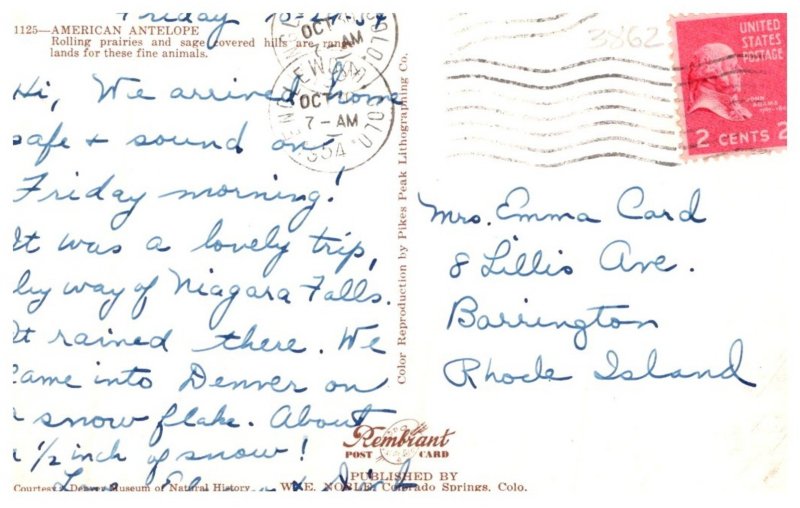 Friday 10-29-54
1125—AMERICAN ANTELOPE
Rolling prairies and sage covered hills are range
lands for these fine animals.
Hi, We arrived home
safe + sound on
Friday morning!
It was a lovely trip,
by way of Niagara Falls.
It rained there. We
came into Denver on
a snow flake. About
1/2 inch of snow!
Love,
Courtesy Denver Museum of Natural History
ENGLEWOOD, COLO.
OCT
7-AM
1954
Color Reproduction by Pikes Peak Lithographing Co.
3862
UNITED
STATES
POSTAGE
JOHN
ADAMS
2 CENTS 2
Mrs. Emma Card
8 Lillis Ave.
Barrington
Rhode Island
Rembrant
POST CARD
PUBLISHED BY
W. E. NOBLE, Colorado Springs, Colo.